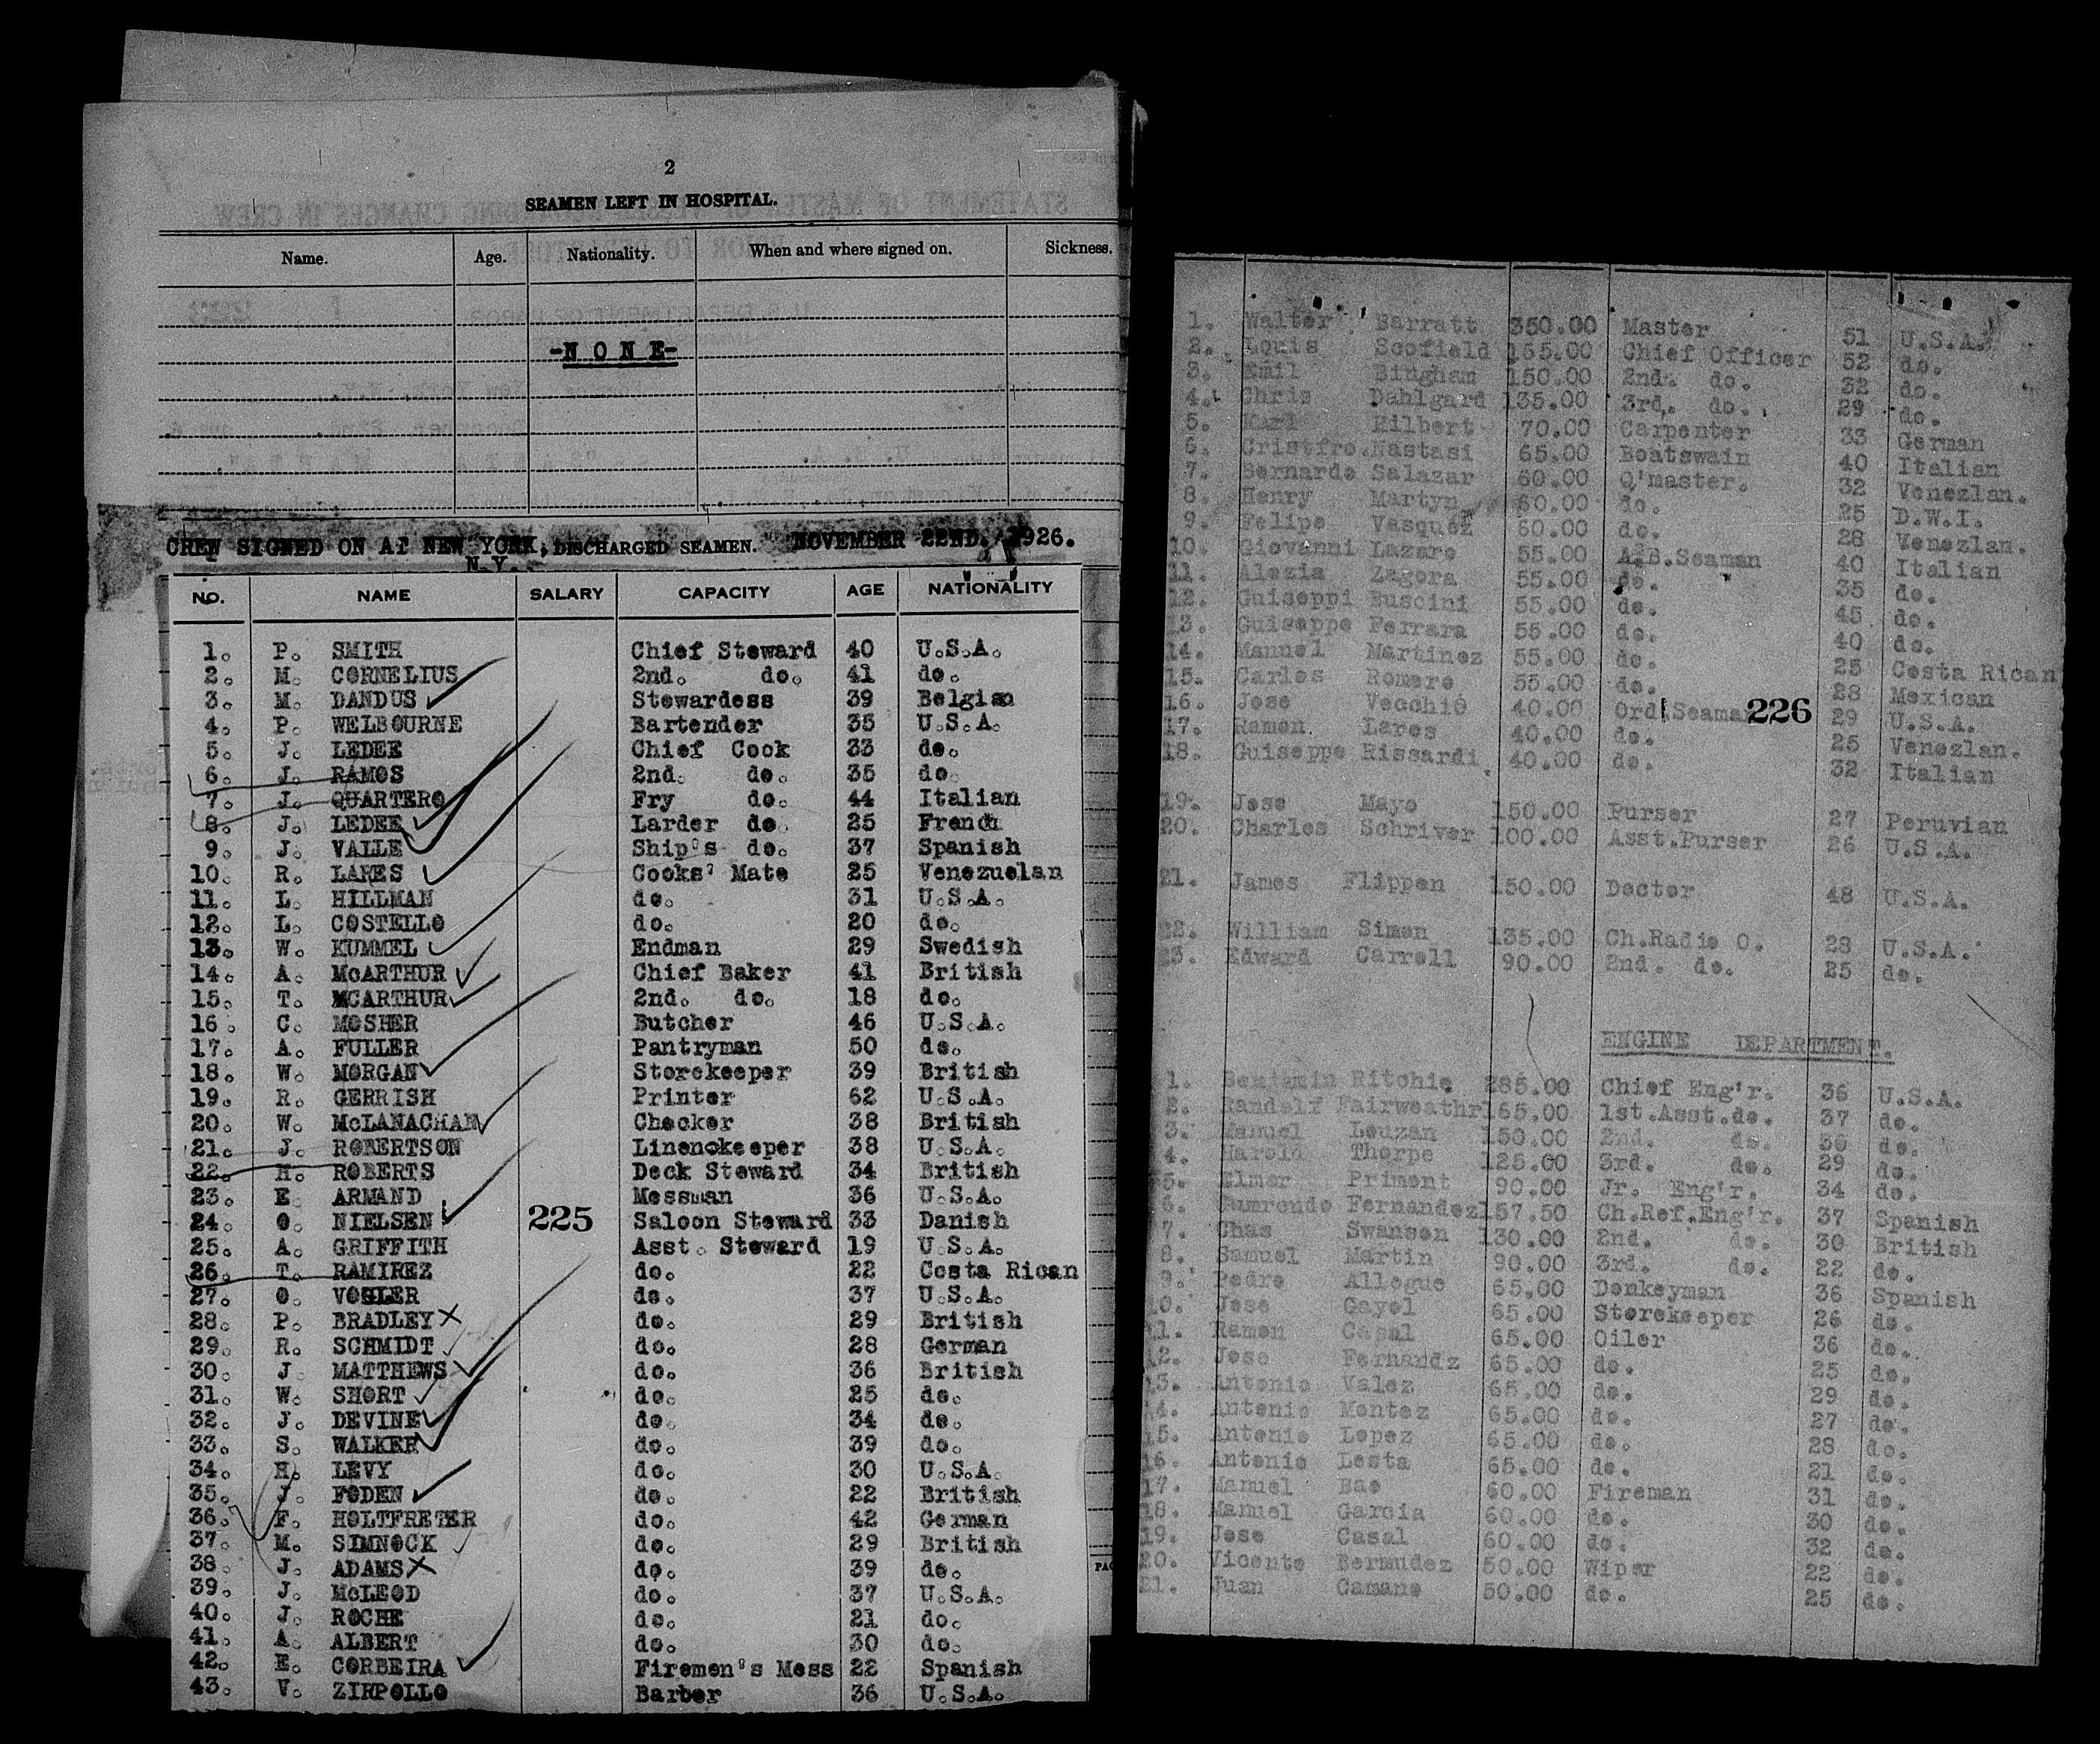 2
SEAMEN LEFT IN HOSPITAL.
Name. Age. Nationality. When and where signed on. Sickness.
-N O N E-
CREW SIGNED ON AT NEW YORK, DISCHARGED SEAMEN. NOVEMBER 22ND. 1926.
N.Y.
NO. NAME SALARY CAPACITY AGE NATIONALITY
1. P. SMITH Chief Steward 40 U.S.A.
2. M. CORNELIUS 2nd. do. 41 do.
3. M. DANDUS Stewardess 39 Belgian
4. P. WELBOURNE Bartender 35 U.S.A.
5. J. LEDEE Chief Cook 33 do.
6. J. RAMOS 2nd. do. 35 do
7. J. QUARTERO Fry do. 44 Italian
8. J. LEDEE Larder do. 25 French
9. J. VALLE Ship's do. 37 Spanish
10. R. LARES Cooks' Mate 25 Venezuelan
11. L. HILLMAN do. 31 U.S.A.
12. L. COSTELLO do. 20 do.
13. W. KUMMEL Endman 29 Swedish
14. A. McARTHUR Chief Baker 41 British
15. T. MCARTHUR 2nd. do. 18 do.
16. C. MOSHER Butcher 46 U.S.A.
17. A. FULLER Pantryman 50 do.
18. W. MORGAN Storekeeper 39 British
19. R. GERRISH Printer 62 U.S.A.
20. W. McLANACHAN Checker 38 British
21. J. ROBERTSON Linenokeeper 38 U.S.A.
22. H. ROBERTS Deck Steward 34 British
23. E. ARMAND Messman 36 U.S.A.
24. O. NIELSEN 225 Saloon Steward 33 Danish
25. A. GRIFFITH Asst. Steward 19 U.S.A.
26. T. RAMIREZ do. 22 Costa Rican
27. O. VOGLER do. 37 U.S.A.
28. P. BRADLEY X do. 29 British
29. R. SCHMIDT do. 28 German
30. J. MATTHEWS do. 36 British
31. W. SHORT do. 25 do.
32. J. DEVINE do. 34 do.
33. S. WALKER do. 39 do.
34. H. LEVY do. 30 U.S.A.
35. J. FODEN do. 22 British
36. F. HOLTFRETER do. 42 German
37. M. SIMNOCK do. 29 British
38. J. ADAMS X do. 39 do.
39. J. McLEOD do. 37 U.S.A.
40. J. ROCHE do. 21 do.
41. A. ALBERT do. 30 do.
42. E. CORBEIRA Firemen's Mess 22 Spanish
43. V. ZIRPOLLO Barber 36 U.S.A.
1. Walter Barratt 350.00 Master 51 U.S.A.
2. Louis Scofield 165.00 Chief Officer 52 do.
3. Emil Bingham 150.00 2nd. do. 32 do.
4. Chris Dahlgard 135.00 3rd. do. 29 do.
5. Karl Hilbert 70.00 Carpenter 33 German
6. Cristfro. Nastasi 65.00 Boatswain 40 Italian
7. Bernardo Salazar 60.00 Q'master. 32 Venezlan.
8. Henry Martyn 60.00 do. 25 D.W.I.
9. Felipe Vasquez 60.00 do. 28 Venezlan.
10. Giovanni Lazaro 55.00 A.B.Seaman 40 Italian
11. Alezia Zagora 55.00 do. 35 do.
12. Guiseppi Buscini 55.00 do. 45 do.
13. Guiseppe Ferrara 55.00 do. 40 do.
14. Manuel Martinez 55.00 do. 25 Costa Rican
15. Carlos Romero 55.00 do. 28 Mexican
16. Jose Vecchio 40.00 Ord.Seaman 226 29 U.S.A.
17. Ramon Lares 40.00 do. 25 Venezlan.
18. Guiseppe Rissardi 40.00 do. 32 Italian
19. Jose Mayo 150.00 Purser 27 Peruvian
20. Charles Schriver 100.00 Asst.Purser 26 U.S.A.
21. James Flippen 150.00 Doctor 48 U.S.A.
22. William Simon 135.00 Ch.Radio O. 28 U.S.A.
23. Edward Carroll 90.00 2nd. do. 25 do.
ENGINE DEPARTMENT.
1. Benjamin Ritchie 285.00 Chief Eng'r. 36 U.S.A.
2. Randolf Fairweathr 165.00 1st.Asst.do. 37 do.
3. Manuel Louzan 150.00 2nd. do. 30 do.
4. Harold Thorpe 125.00 3rd. do. 29 do.
5. Elmer Priment 90.00 Jr. Eng'r. 34 do.
6. Fernandez 157.50 Ch.Ref.Eng'r. 37 Spanish
7. Chas Swanson 130.00 2nd. do. 30 British
8. Samuel Martin 90.00 3rd. do. 22 do.
9. Pedro Allegue 65.00 Donkeyman 36 Spanish
10. Jose Gayol 65.00 Storekeeper 26 do.
11. Ramon Casal 65.00 Oiler 36 do.
12. Jose Fernandz 65.00 do. 25 do.
13. Antonio Valez 65.00 do. 29 do.
14. Antonio Montez 65.00 do. 27 do.
15. Antonio Lopez 65.00 do. 28 do.
16. Antonio Lesta 65.00 do. 21 do.
17. Manuel Bao 60.00 Fireman 31 do.
18. Manuel Garcia 60.00 do. 30 do.
19. Jose Casal 60.00 do. 32 do.
20. Vicente Bermudez 50.00 Wiper 22 do.
21. Juan Camano 50.00 do. 25 do.